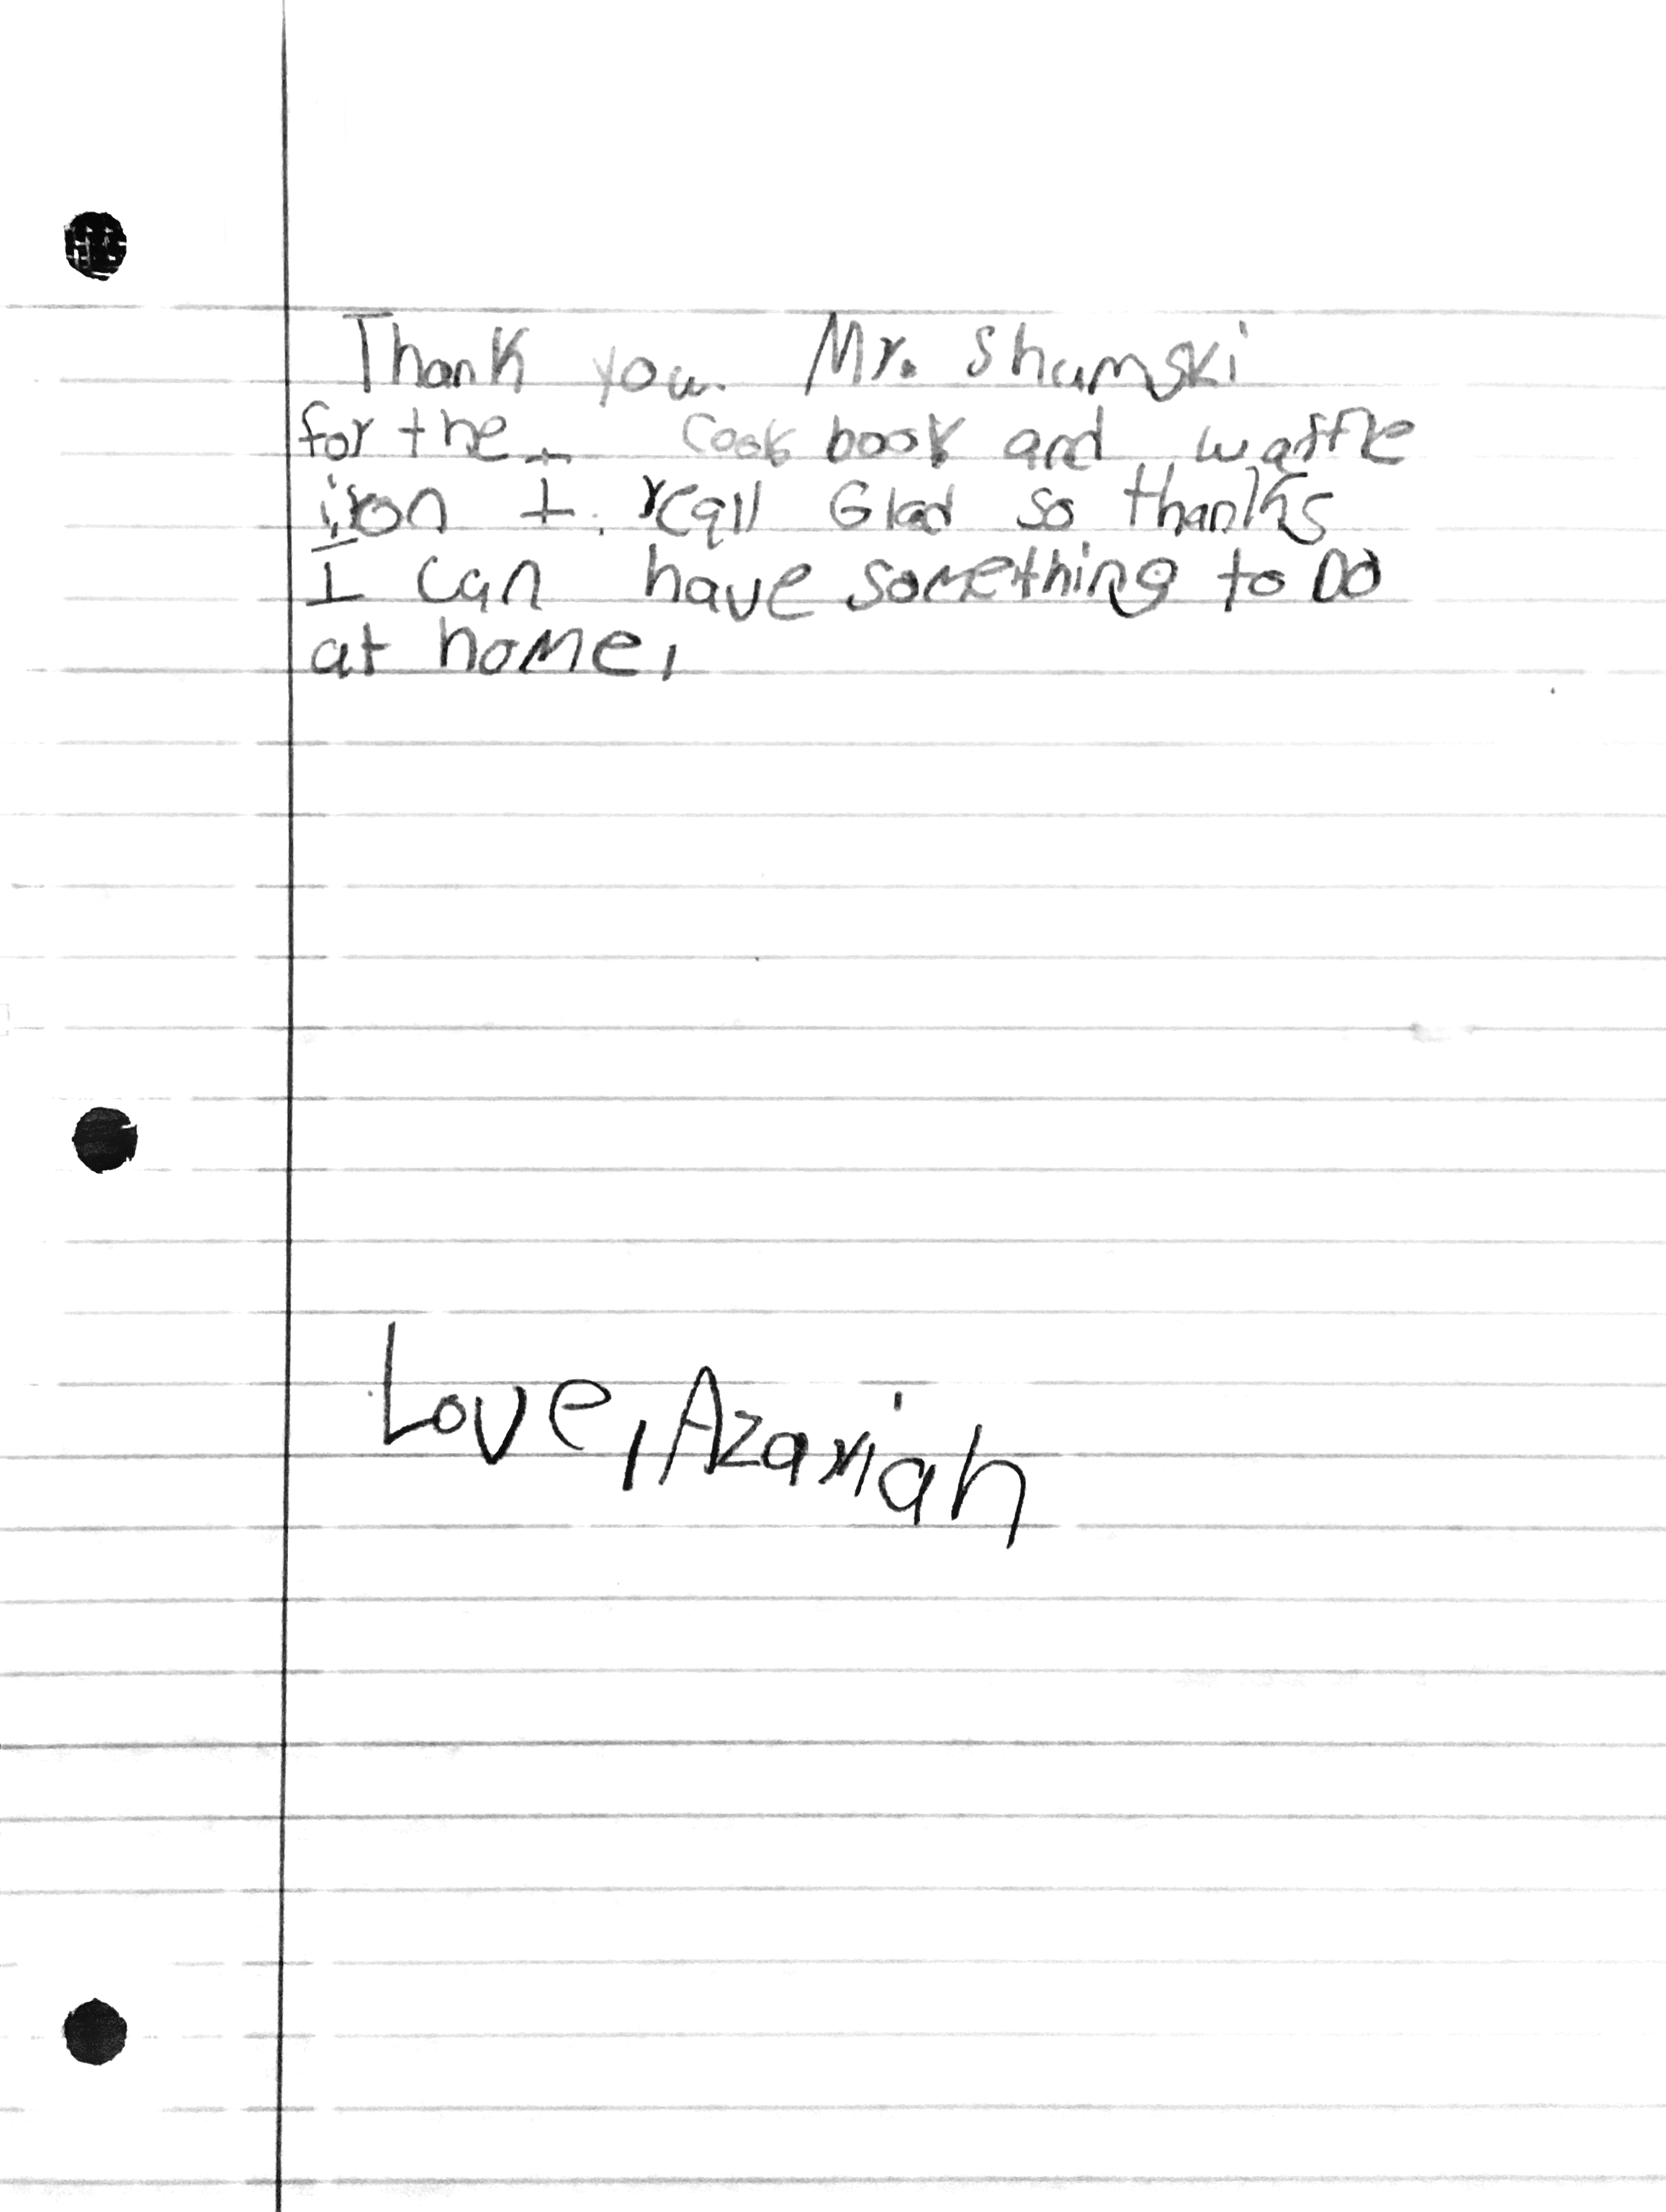 Thank you Mr. Shamski
for the cook book and waffle
iron I reall Glad so thanks
I can have something to Do
at home,
Love, Azariah